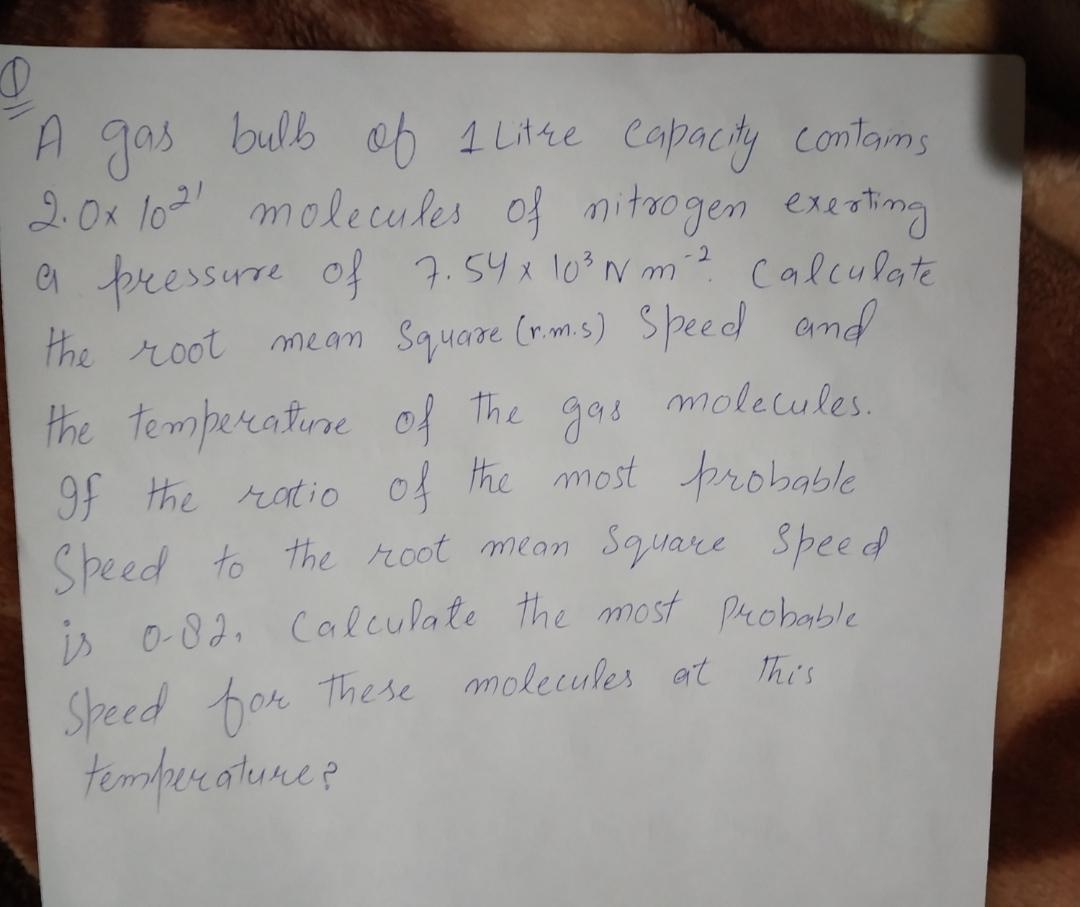 ①
A gas bulb of 1 Litre capacity contains
2.0x 10²¹ molecules of nitrogen exerting
a pressure of 7.54 x 10³ N m⁻². Calculate
the root mean Square (r.m.s) Speed and
the temperature of the gas molecules.
If the ratio of the most probable
Speed to the root mean Square Speed
is 0-82. Calculate the most Probable
Speed for these molecules at this
temperature?